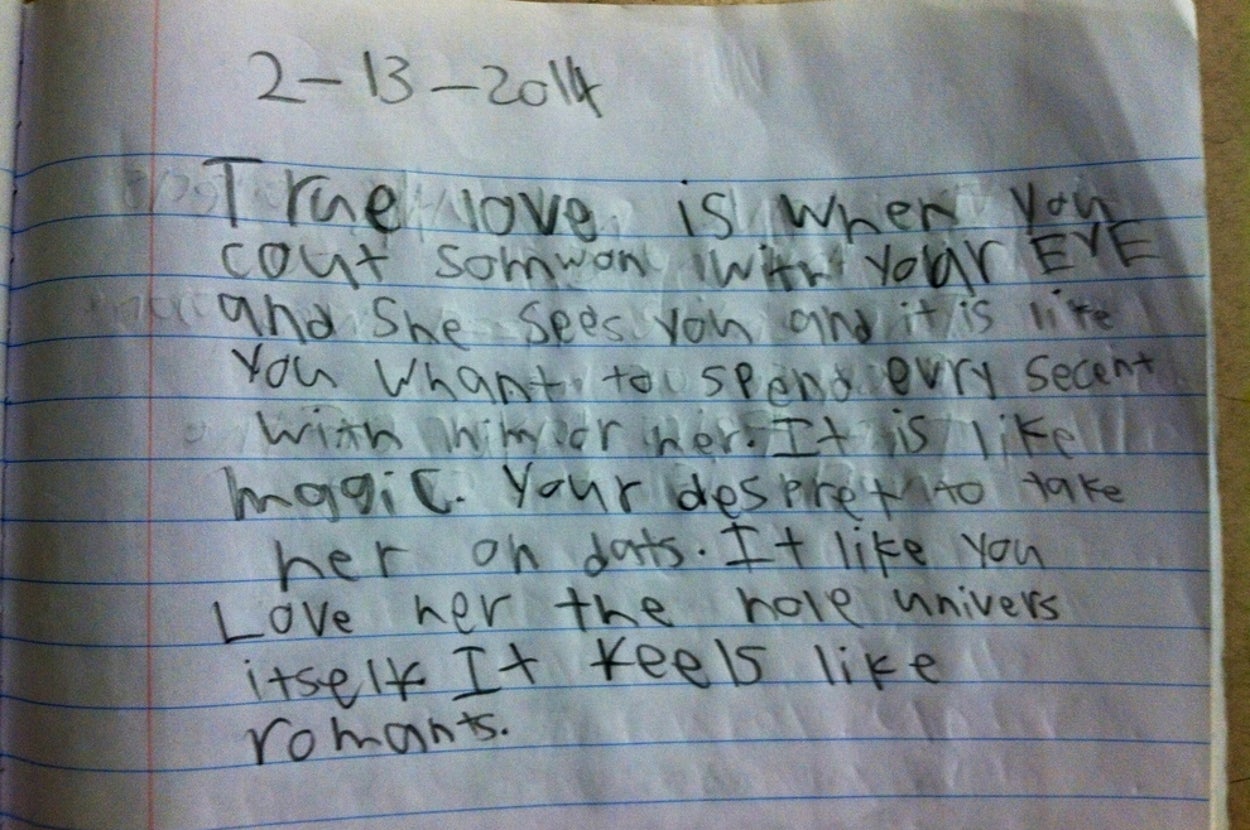 2-13-2014
True love is when you
cout somwon with your EYE
and she sees you and it is like
you whant to spend evry secent
with him or her. It is like
magic. Your despret to take
her on dats. It like you
Love her the hole univers
itself It feels like
romants.